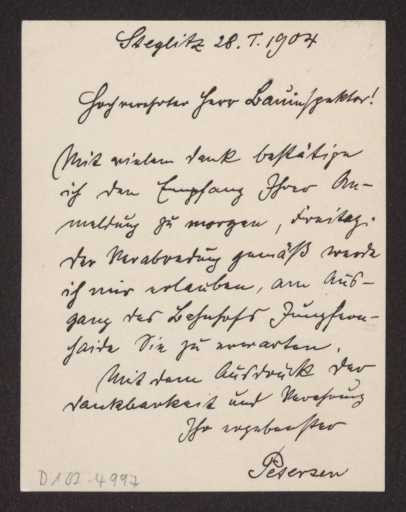 Steglitz 28. I. 1904
Hochverehrter Herr Bauinspektor!
Mit vielem Dank bestätige
ich den Empfang Ihrer An-
meldung zu morgen, Freitag.
Der Verabredung gemäß werde
ich mir erlauben, am Aus-
gang des Bahnhofs Jungfern-
haide Sie zu erwarten.
Mit dem Ausdruck der
Dankbarkeit und Verehrung
Ihr ergebenster
Petersen
D 102-4997